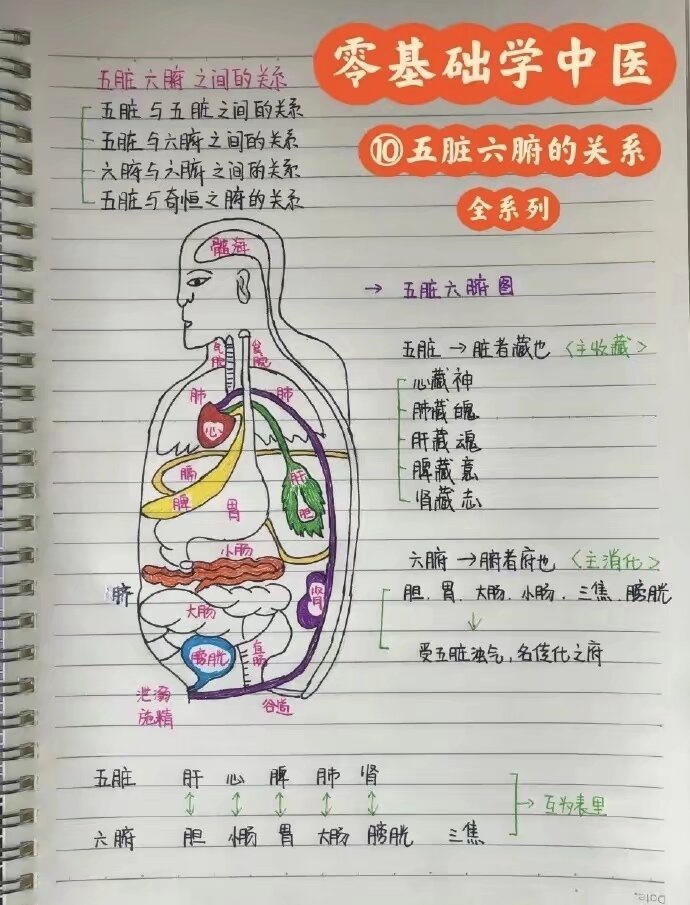 零基础学中医
⑩五脏六腑的关系
全系列
五脏六腑之间的关系
五脏与五脏之间的关系
五脏与六腑之间的关系
六腑与六腑之间的关系
五脏与奇恒之腑的关系
髓海
→ 五脏六腑图
气管
食管
肺
肺
心
五脏→脏者藏也〈主收藏〉
心藏神
肺藏魄
肝藏魂
脾藏意
肾藏志
膈
肝
脾
胃
胆
小肠
六腑→腑者府也〈主消化〉
胆、胃、大肠、小肠、三焦、膀胱
↓
受五脏浊气,名传化之府
脐
肾
大肠
膀胱
直肠
泄溺
施精
谷道
五脏 肝 心 脾 肺 肾
↕ ↕ ↕ ↕ ↕
→互为表里
六腑 胆 小肠 胃 大肠 膀胱 三焦
Date.